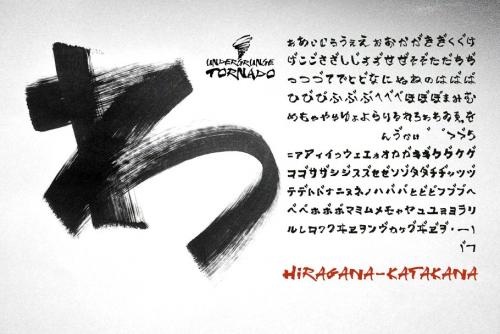 わ
UNDERGRUNGE
TORNADO
ぁあぃいぅうぇえぉおかがきぎくぐけ
げこごさざしじすずせぜそぞただちぢ
っつづてでとどなにぬねのはばぱ
ひびぴふぶぷへべぺほぼぽまみむ
めもゃやゅゆょよらりるれろゎわゐゑを
んゔ
ァアィイゥウェエォオカガキギクグケゲ
コゴサザシジスズセゼソゾタダチヂッツヅ
テデトドナニヌネノハバパヒビピフブプヘ
ベペホボポマミムメモャヤュユョヨラリ
ルレロヮワヰヱヲンヴヵヶ
HiRAGANA-KATAKANA